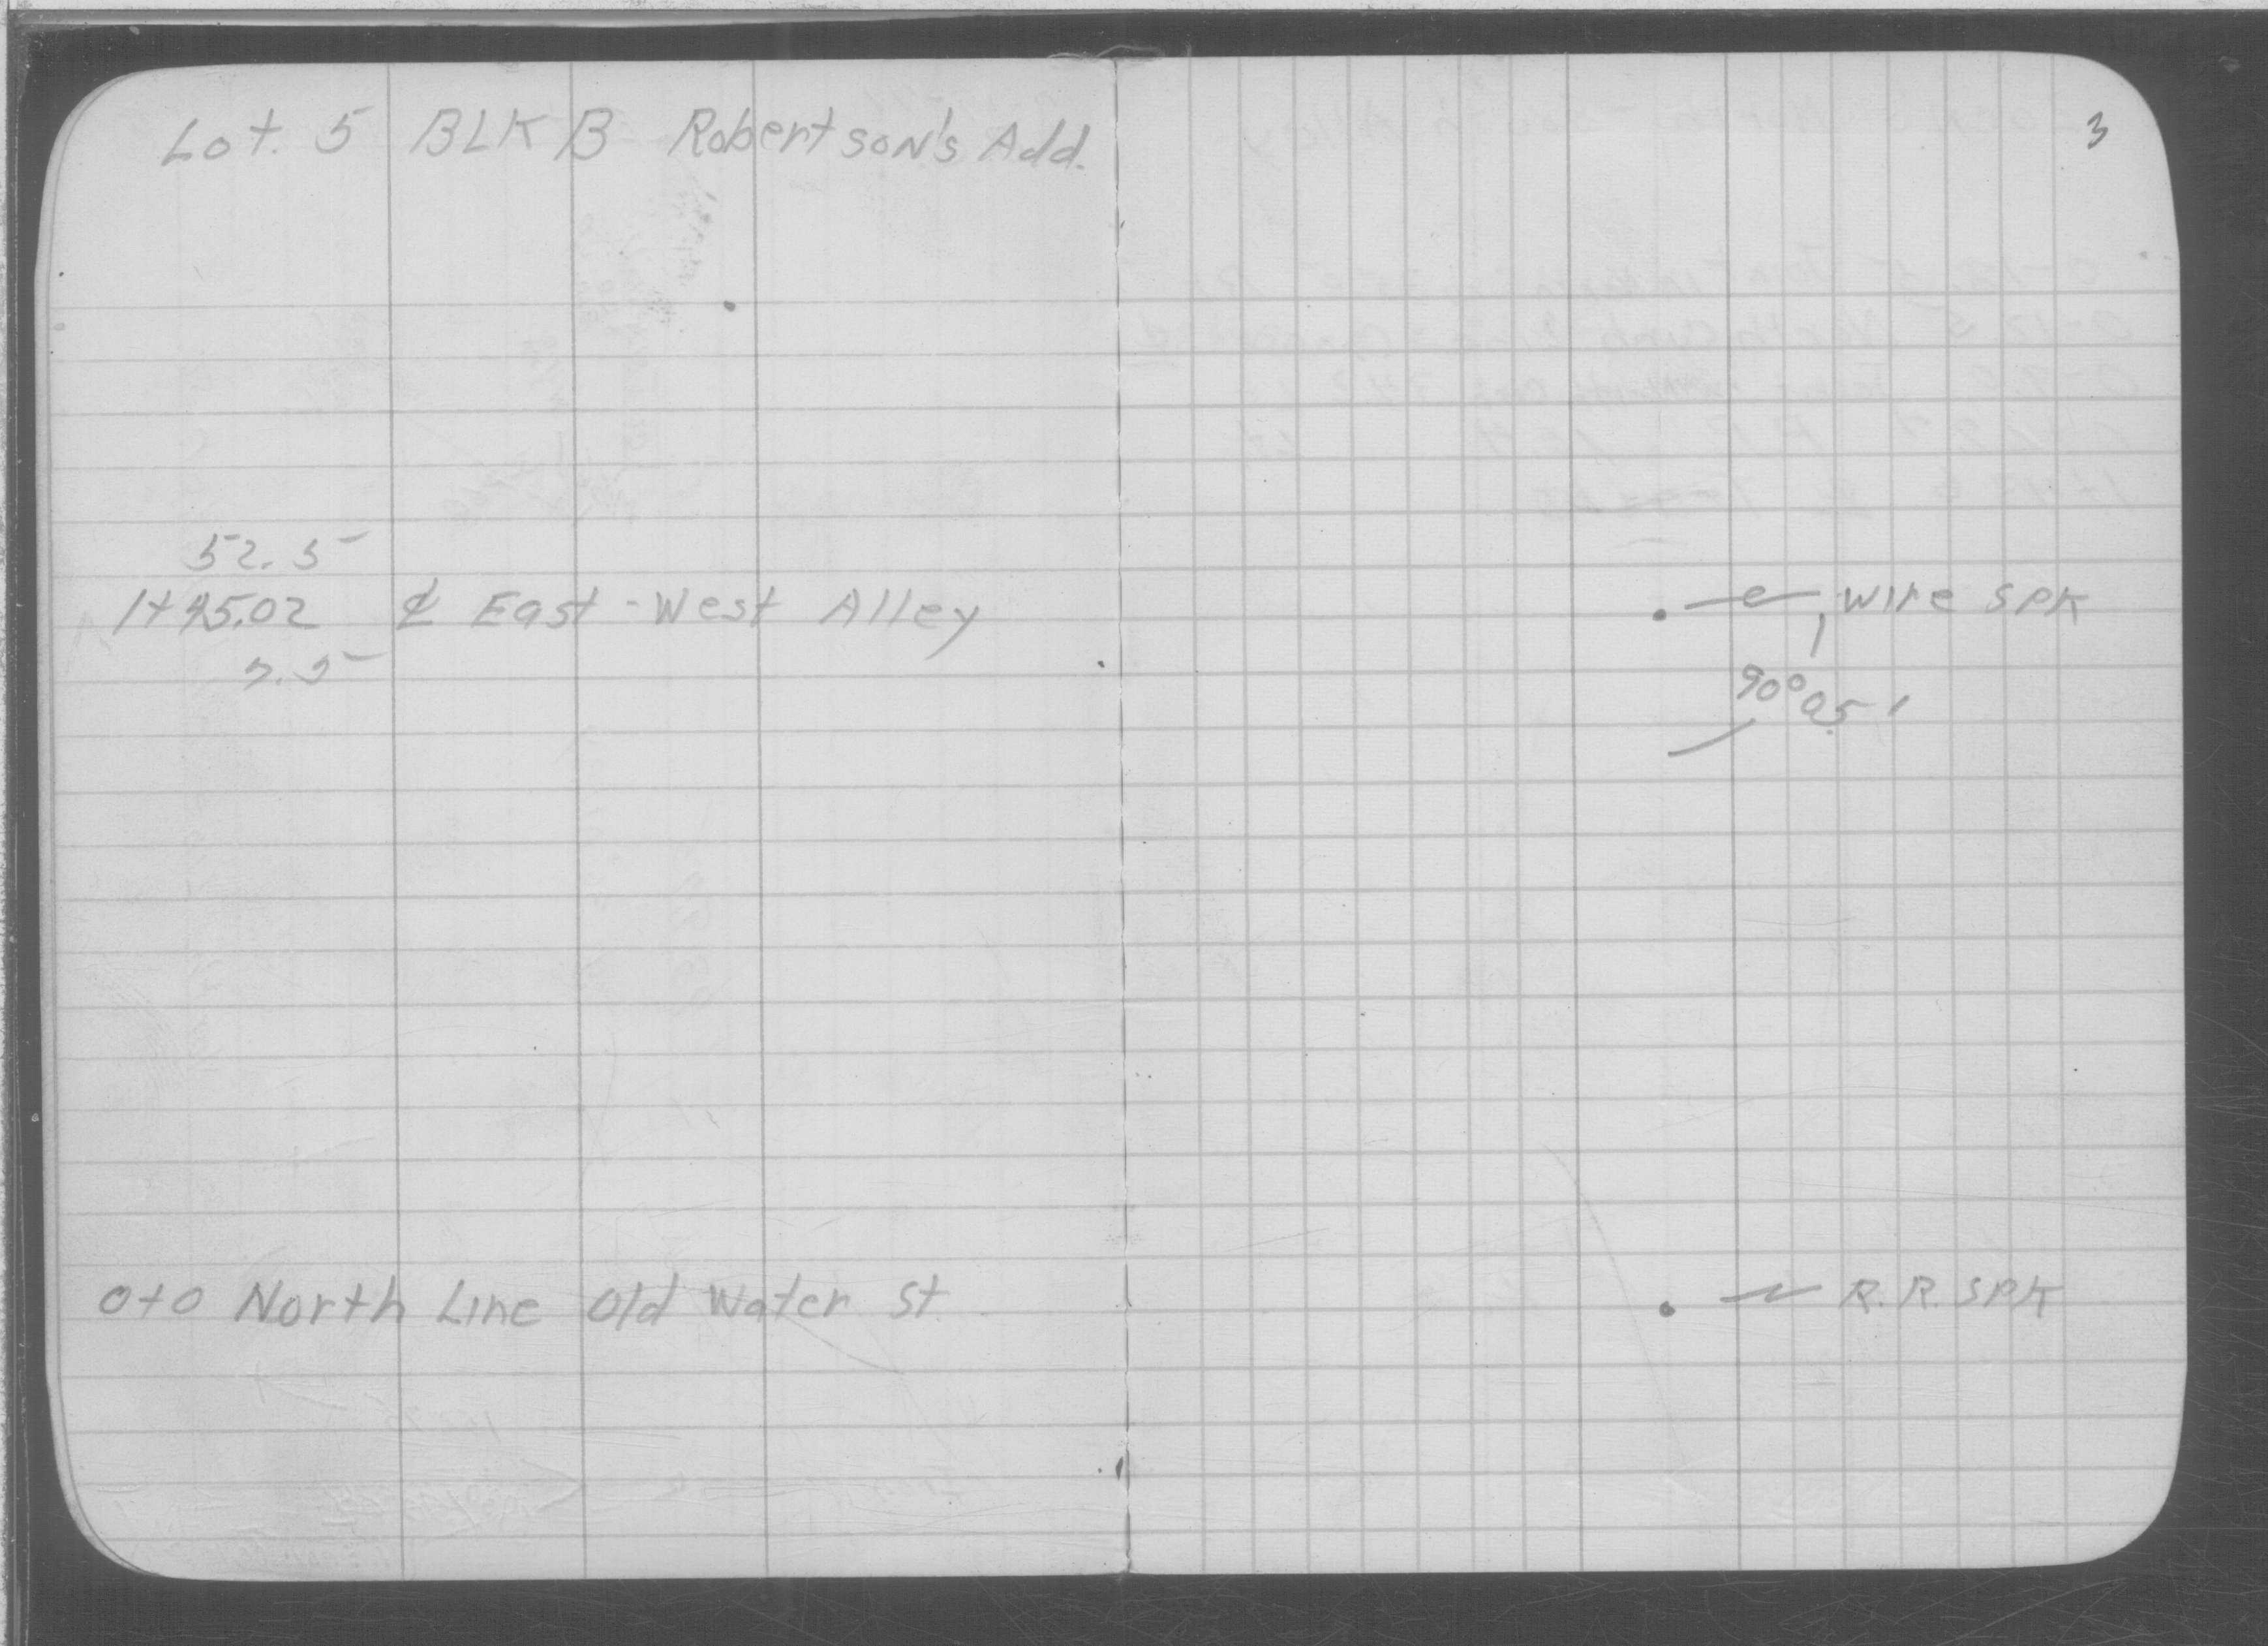 Lot. 5 BLK B Robertson's Add.
3
52.5
1+45.02 ȼ East-West Alley
7.5
wire SPK
90° 05'
0+0 North Line Old Water St
R.R. SPK